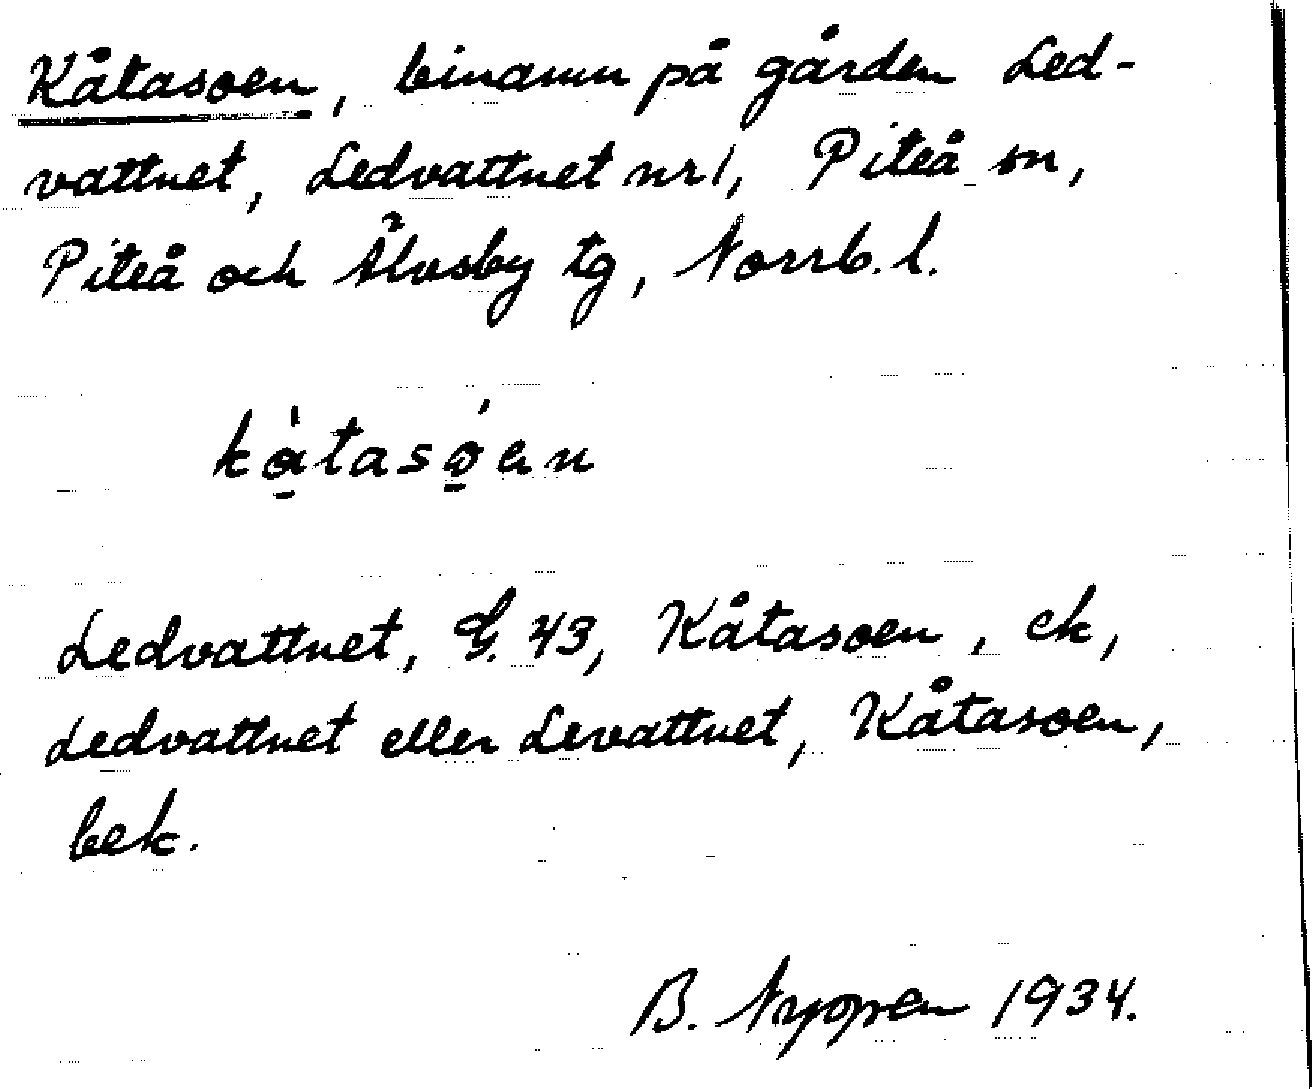 Kåtasoen, binamn på gården Led-
vattnet, Ledvattnet nr 1, Piteå sn,
Piteå och Älvsby tg, Norrb. l.
kå̀tasǫ́en
Ledvattnet, G. 43, Kåtasoen, ek,
Ledvattnet eller Levattnet, Kåtasoen,
bek.
B. Nyppen 1934.